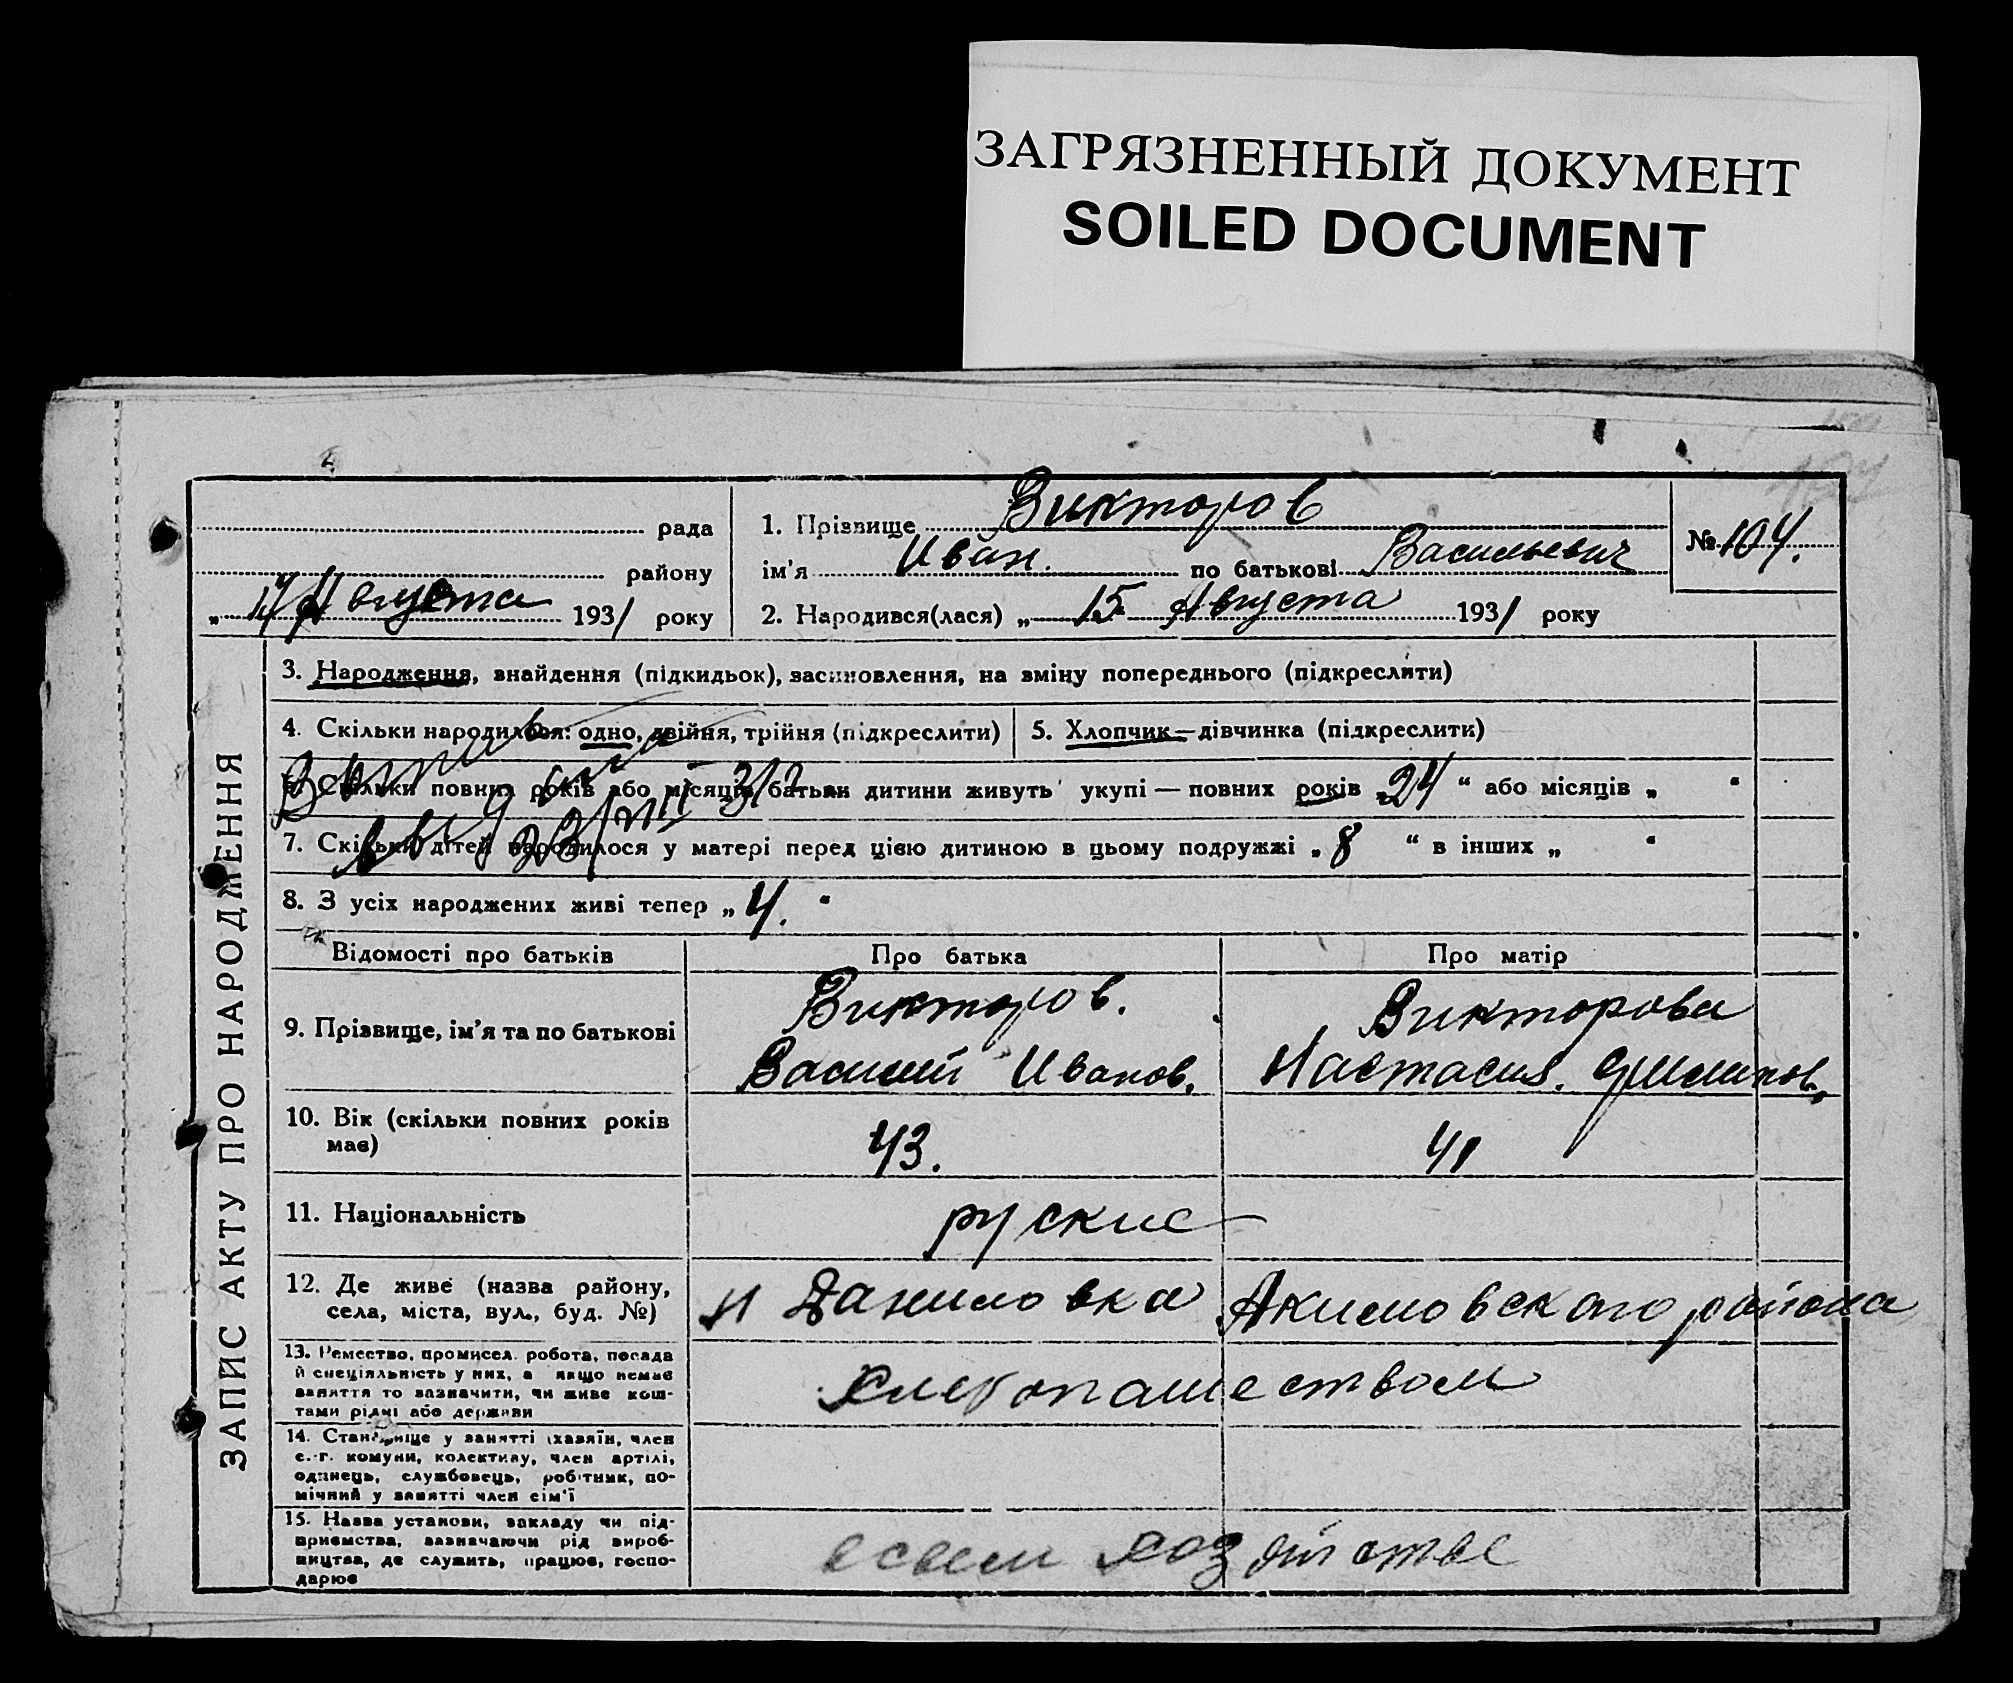 ЗАГРЯЗНЕННЫЙ ДОКУМЕНТ
SOILED DOCUMENT
рада
району
„ 17 Августа 1931 року
1. Прізвище Викторов
ім'я Иван. по батькові Васильевич
2. Народився(лася) „ 15 Августа 1931 року
№ 104.
ЗАПИС АКТУ ПРО НАРОДЖЕННЯ
3. Народження, внайдення (підкидьок), засиновлення, на зміну попереднього (підкреслити)
4. Скільки народилося: одно, двійня, трійня (підкреслити)
5. Хлопчик—дівчинка (підкреслити)
6. Скільки повних років або місяців батьки дитини живуть укупі — повних років „ 24 “ або місяців „ “
7. Скільки дітей народилося у матері перед цією дитиною в цьому подружжі „ 8 “ в інших „ “
8. З усіх народжених живі тепер „ 4. “
Відомості про батьків
Про батька
Про матір
9. Прізвище, ім'я та по батькові
Викторов.
Василий Иванов.
Викторова
Настасия.
10. Вік (скільки повних років
має)
43.
41
11. Національність
руские
12. Де живе (назва району,
села, міста, вул., буд. №)
Н Даниловка Акимовского района
13. Ремество, промисел. робота, посада
й спеціяльність у них, а якщо немає
заняття то зазначити, чи живе кош-
тами рідні або держави
Хлебопашеством
14. Становище у занятті (хазяїн, член
с.-г. комуни, колективу, член артілі,
одинець, службовець, робітник, по-
мічний у занятті член сім'ї
15. Назва установи, закладу чи під-
приємства, зазначаючи рід вироб-
ництва, де служить, працює, госпо-
дарює
всвоем хозяйстве